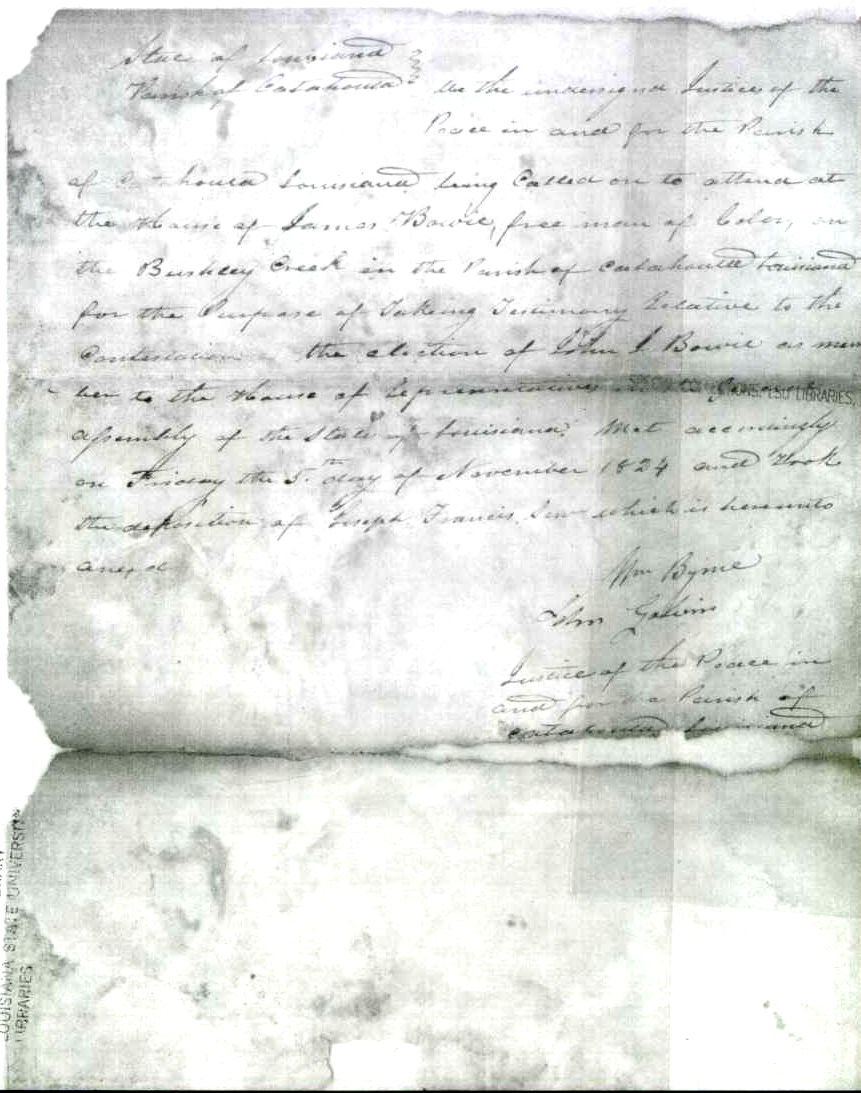 State of Louisiana
Parish of Catahoula We the undersigned Justices of the
Peace in and for the Parish
of Catahoula Louisiana being Called on to attend at
the House of James Bowie, free man of Color, on
the Bushley Creek in the Parish of Catahoula Louisiana
for the Purpose of Taking Testimony Relative to the
Contestation the election of John J Bowie as mem
ber to the House of Representatives
assembly of the State of Louisiana. Met accordingly
on Friday the 5th day of November 1824 and Took
the deposition of Joseph Francis which is hereunto
anexd
Wm Byrne
John
Justice of the Peace in
and for the Parish of
Catahoula Louisiana
LSU LIBRARIES,
LOUISIANA STATE UNIVERSITY
LIBRARIES